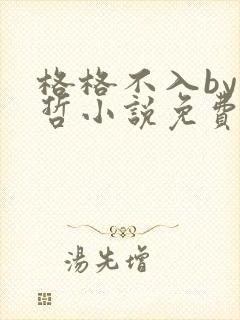 格格不入by
哲小說免費
湯先增